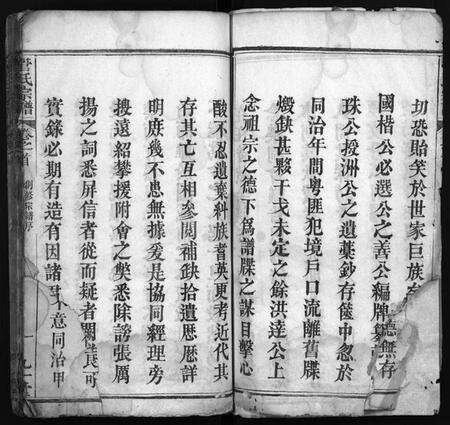 切恐貽笑於世家巨族
國楷公必選公之善公編牒
德無存
珠公援洲公之遺藁鈔存篋中忽於
同治年間粵匪犯境戶口流離舊牒
燬鈌甚夥干戈未定之餘洪達公上
念祖宗之德下爲譜牒之謀目擊心
酸不忍遺棄糾族耆英更考近代其
存其亡互相參閱補缺拾遺歷歷詳
明庶幾不患無據爰是協同經理旁
搜遠紹攀援附會之獘悉除謗張厲
揚之詞悉屏信者從而疑者闕
可
實錄必期有造有因諸
意同治甲
氏宗譜
卷之首
創修宗譜序
九